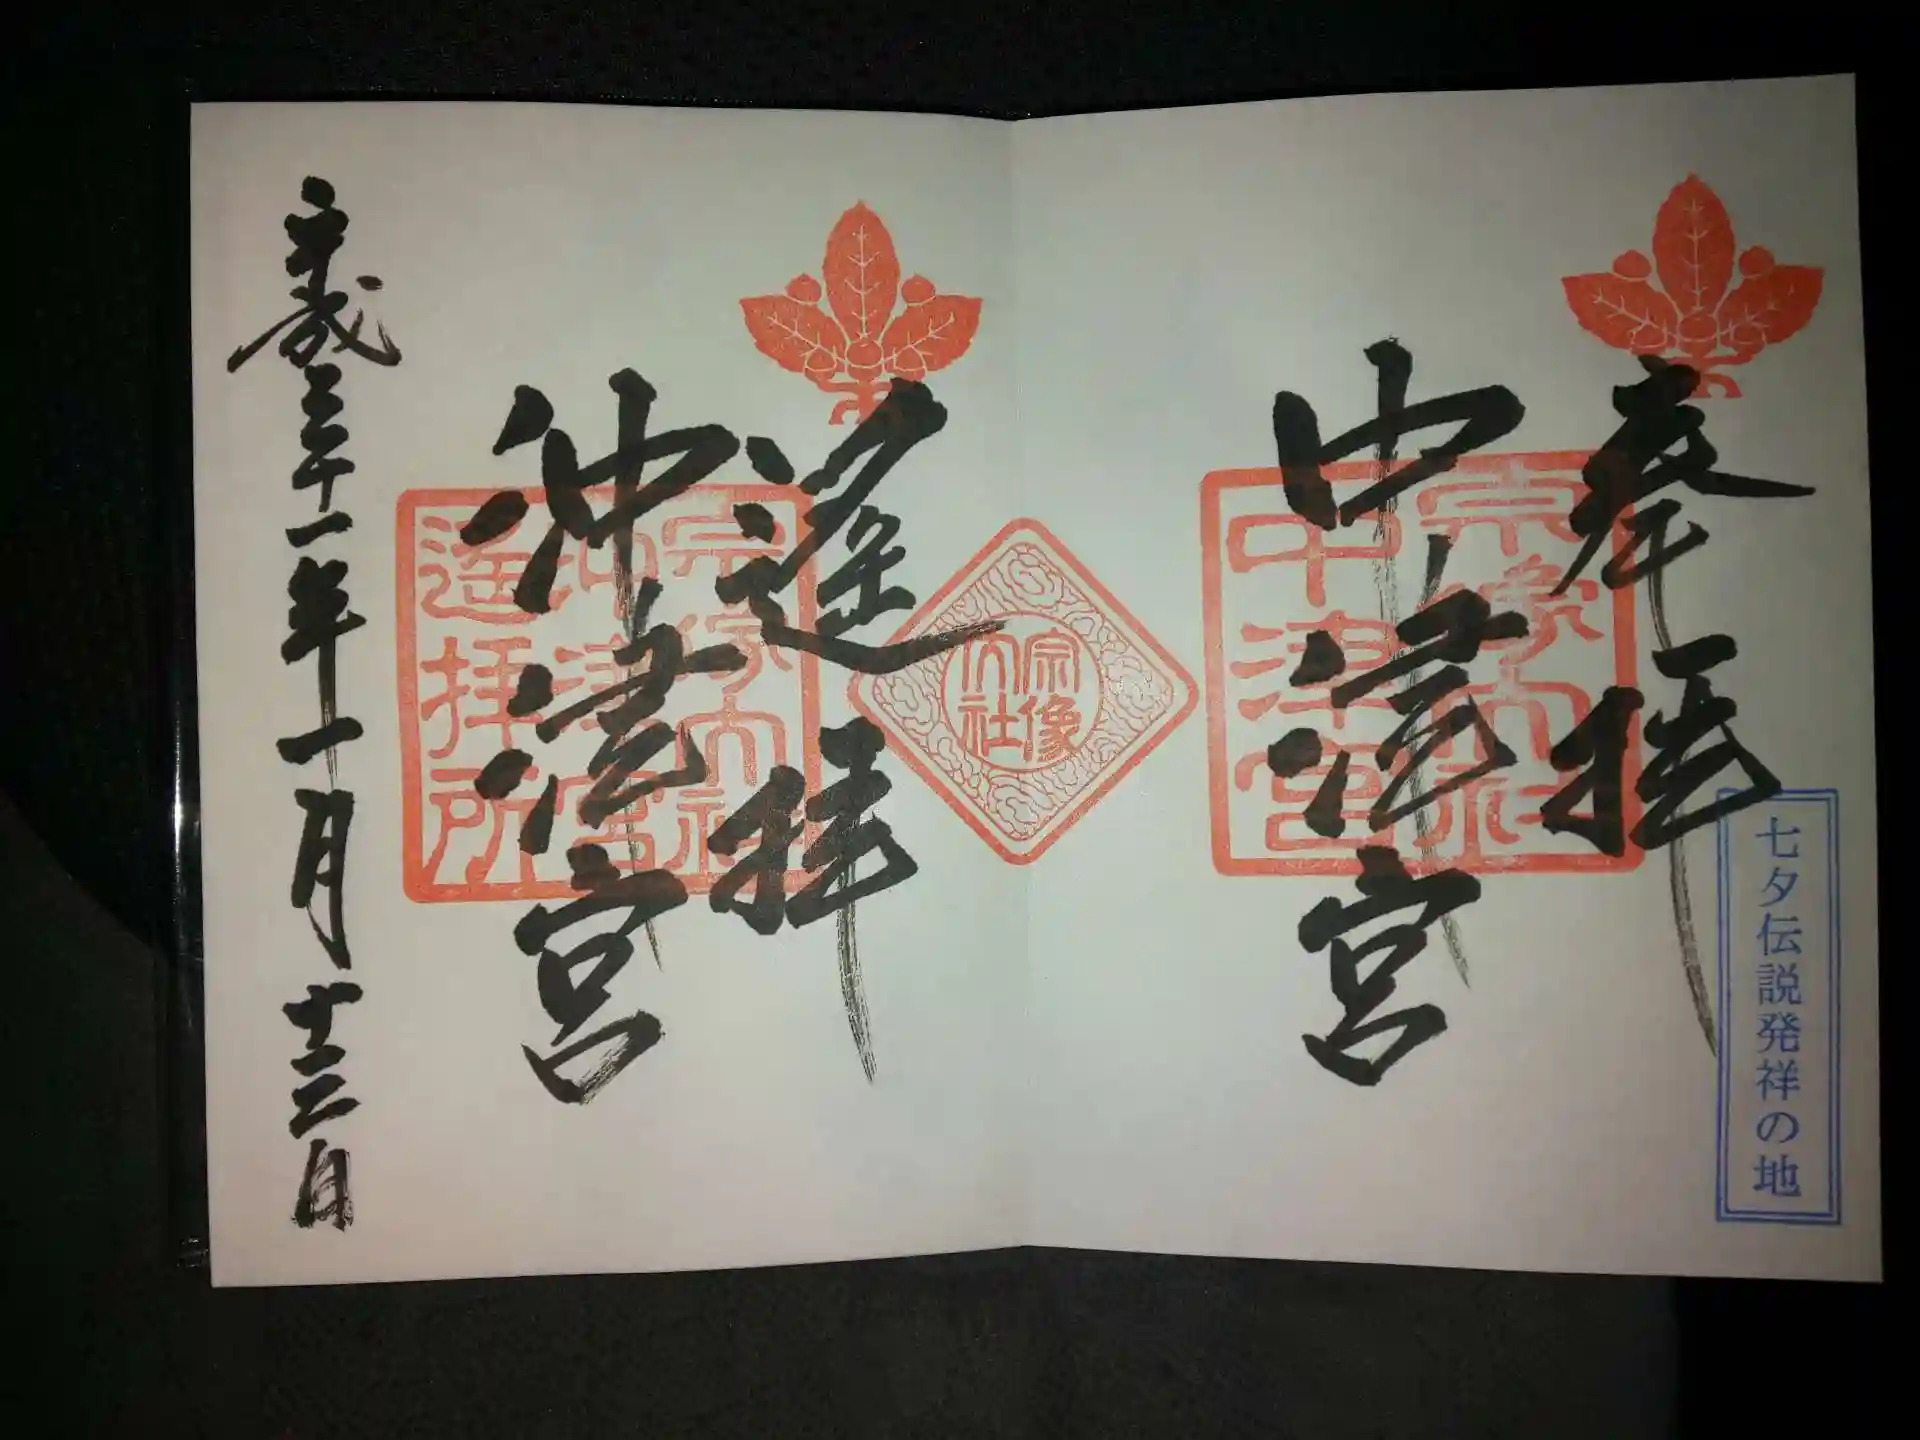 奉拝
中津宮
宗像大社
中津宮
七夕伝説発祥の地
宗像
大社
遥拝
沖津宮
宗像大社
沖津宮
遥拝所
平成三十一年一月十三日